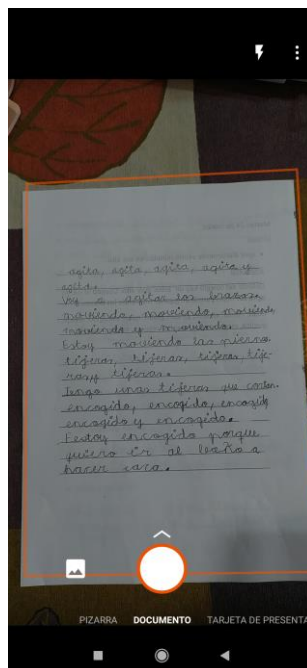 agita, agita, agita, agita y
agita.
Voy a agitar los brazos,
moviendo, moviendo, moviendo
moviendo y moviendo.
Estoy moviendo las piernas
tijeras, tijeras, tijeras, tije-
ras y tijeras.
Tengo unas tijeras que cortan.
encogido, encogido, encogido
encogido y encogido.
Estoy encogido porque
quiero ir al baño a
hacer caca.
PIZARRA DOCUMENTO TARJETA DE PRESENTA